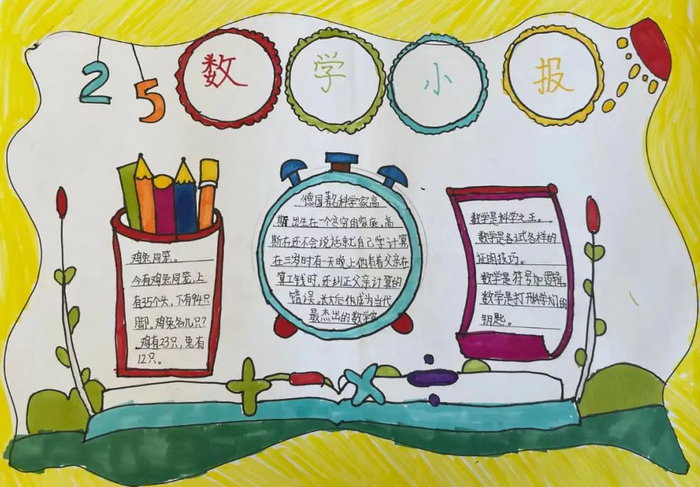 数学小报
25
鸡兔同笼。
今有鸡兔同笼,上
有35个头,下有94只
脚。鸡兔各几只?
鸡有23只,兔有
12只。
德国著名科学家高
斯出生在一个贫穷的家庭。高
斯在还不会说话就自己学计算
在三岁时有一天晚上他看着父亲在
算工钱时,还纠正父亲计算的
错误。长大后他成为当代
最杰出的数学家
数学是科学之王。
数学是各式各样的
证明技巧。
数学是符号加逻辑。
数学是打开科学大门的
钥匙。